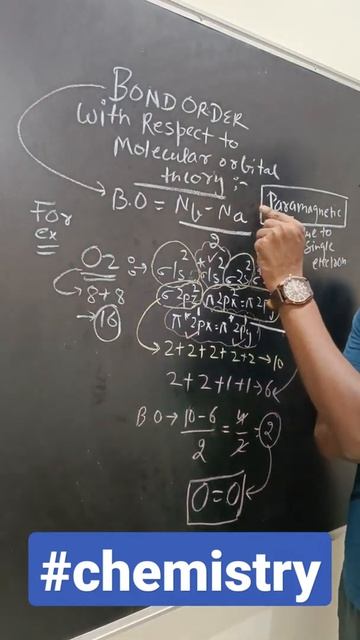 BOND ORDER
with Respect to
Molecular orbital
theory :-
B.O = Nb - Na
2
Paramagnetic
due to
single
electron
For
ex
O2 :
8+8
→ 16
σ1s² σ*1s² σ2s²
σ2pz² π2px² = π2py
π*2px¹ = π*2py¹
2+2+2+2+2 → 10
2+2+1+1 → 6
B O → 10-6 = 4 = 2
2 2
O=O
#chemistry